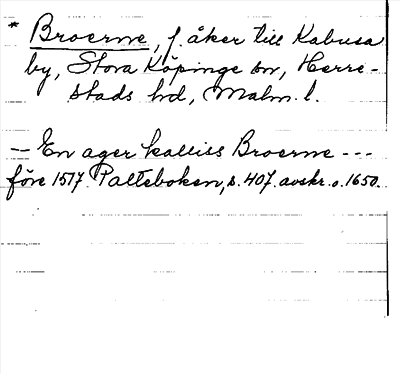 * Broerne, f. åker till Kabusa
by, Stora Köpinge sn, Herre-
stads hd, Malm. l.
— En ager kalliss Broerne ---
före 1517. Palteboken, s. 407. avskr. o. 1650.